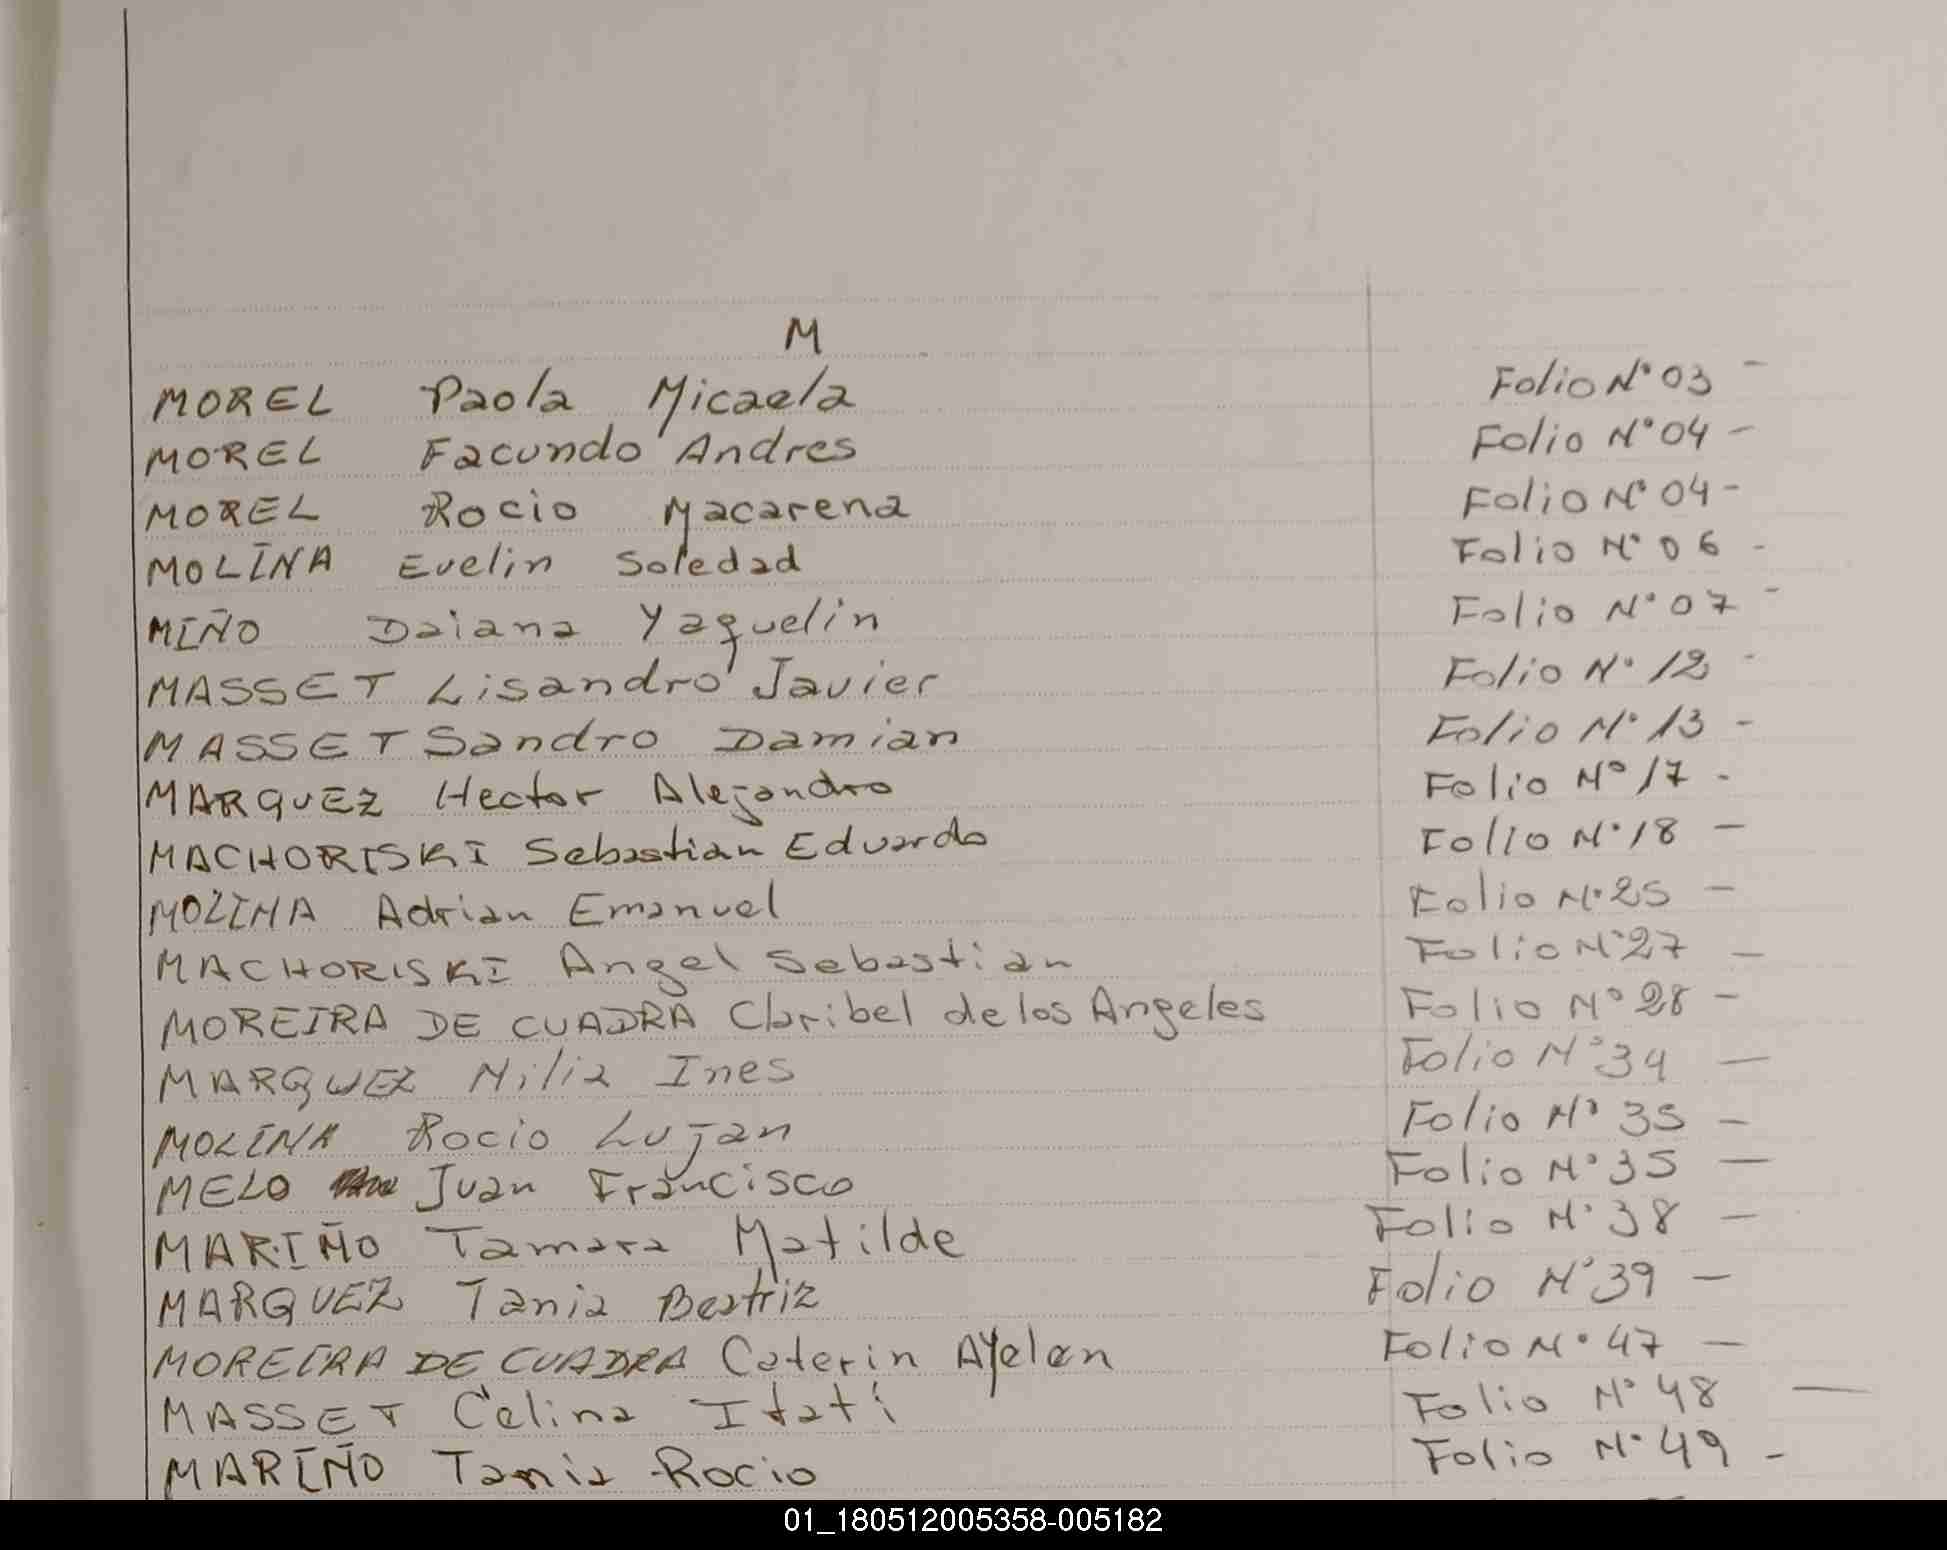 M
MOREL Paola Micaela Folio N° 03 -
MOREL Facundo Andres Folio N° 04 -
MOREL Rocio Macarena Folio N° 04 -
MOLINA Evelin Soledad Folio N° 06 -
MIÑO Daiana Yaquelin Folio N° 07 -
MASSET Lisandro Javier Folio N° 12 -
MASSET Sandro Damian Folio N° 13 -
MARQUEZ Hector Alejandro Folio N° 17 -
MACHORISKI Sebastian Eduardo Folio N° 18 -
MOLINA Adrian Emanuel Folio N° 25 -
MACHORISKI Angel Sebastian Folio N° 27 -
MOREIRA DE CUADRA Claribel de los Angeles Folio N° 28 -
MARQUEZ Nilia Ines Folio N° 34 -
MOLINA Rocio Lujan Folio N° 35 -
MELO Juan Francisco Folio N° 35 -
MARIÑO Tamara Matilde Folio N° 38 -
MARQUEZ Tania Beatriz Folio N° 39 -
MOREIRA DE CUADRA Caterin Ayelen Folio N° 47 -
MASSET Celina Itatí Folio N° 48 -
MARIÑO Tania Rocio Folio N° 49 -
01_180512005358-005182